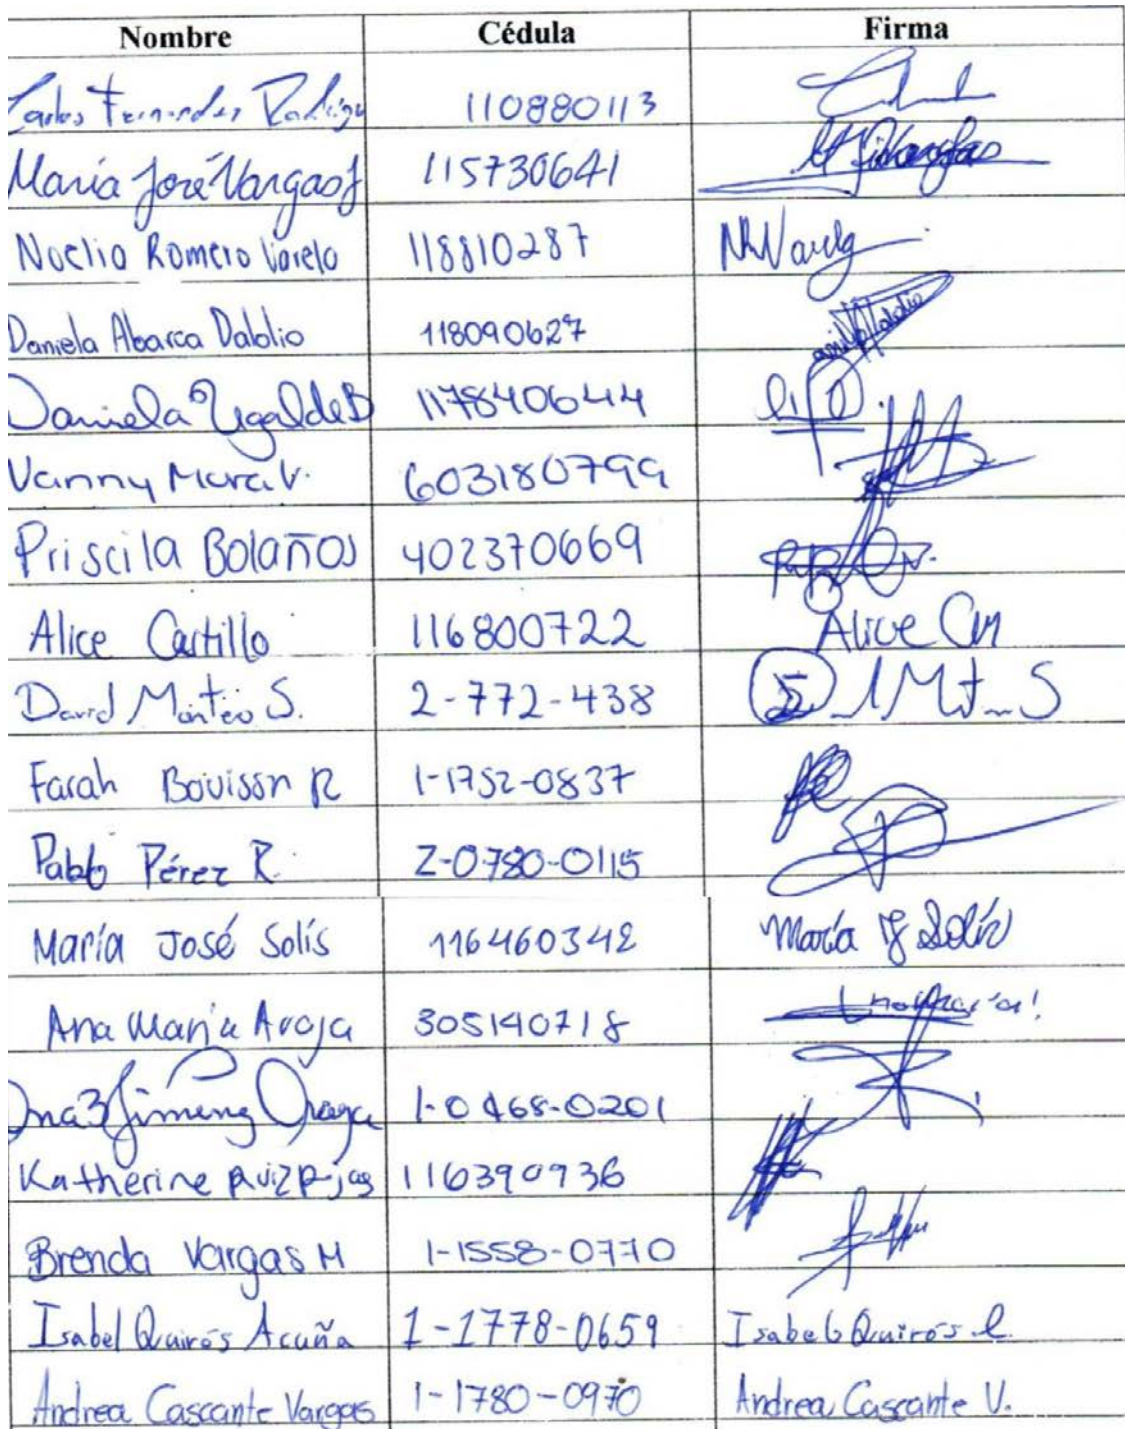 Nombre Cédula Firma
Carlos Fernandez Rodrígu 110880113
María José Vargas J 115730641
Noelia Romero Varela 118810287 NRVarela
Daniela Abarca Dablio 118090627
Daniela Ugalde B 117840644
Vanny Mora V. 603180799
Priscila Bolaños 402370669
Alice Castillo 116800722 Alice CM
David Montero S. 2-772-438
Farah Bouisson R 1-1752-0837
Pablo Pérez R. 2-0780-0115
María José Solís 116460342 María J Solís
Ana María Araya 305140718
Jimena Araya 1-0468-0201
Katherine Ruiz Rojas 116390936
Brenda Vargas M 1-1558-0770
Isabel Quirós Acuña 1-1778-0659 Isabel Quirós
Andrea Cascante Vargas 1-1780-0970 Andrea Cascante V.